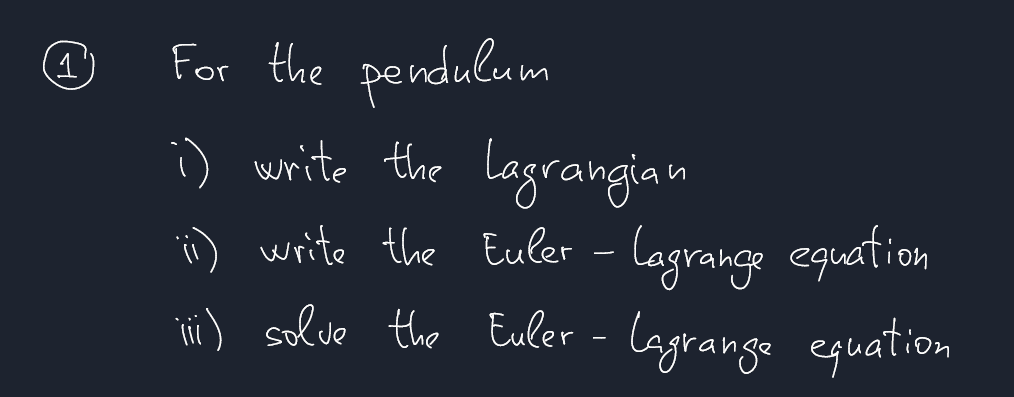 1 For the pendulum
i) write the Lagrangian
ii) write the Euler - Lagrange equation
iii) solve the Euler - Lagrange equation